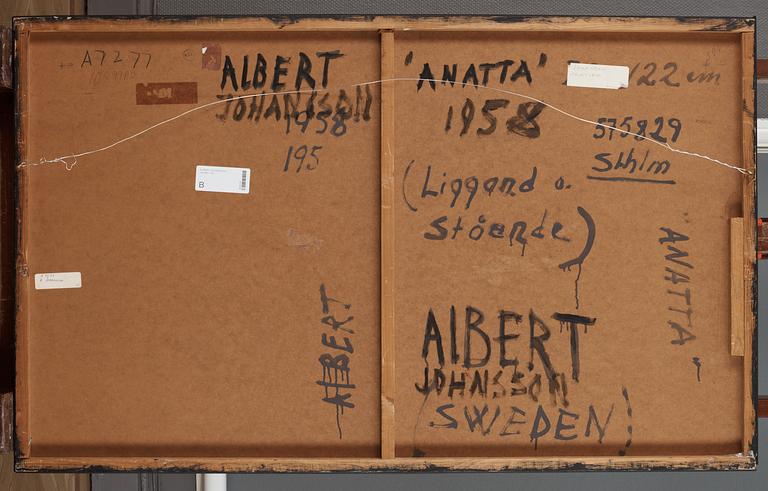 A7277
ALBERT
JOHANSSON
1958
195
B
ALBERT
'ANATTA'
1958
122 cm
575829
Sthlm
(Liggand o.
Stående)
"ANATTA"
ALBERT
JOHNSSON
(SWEDEN)